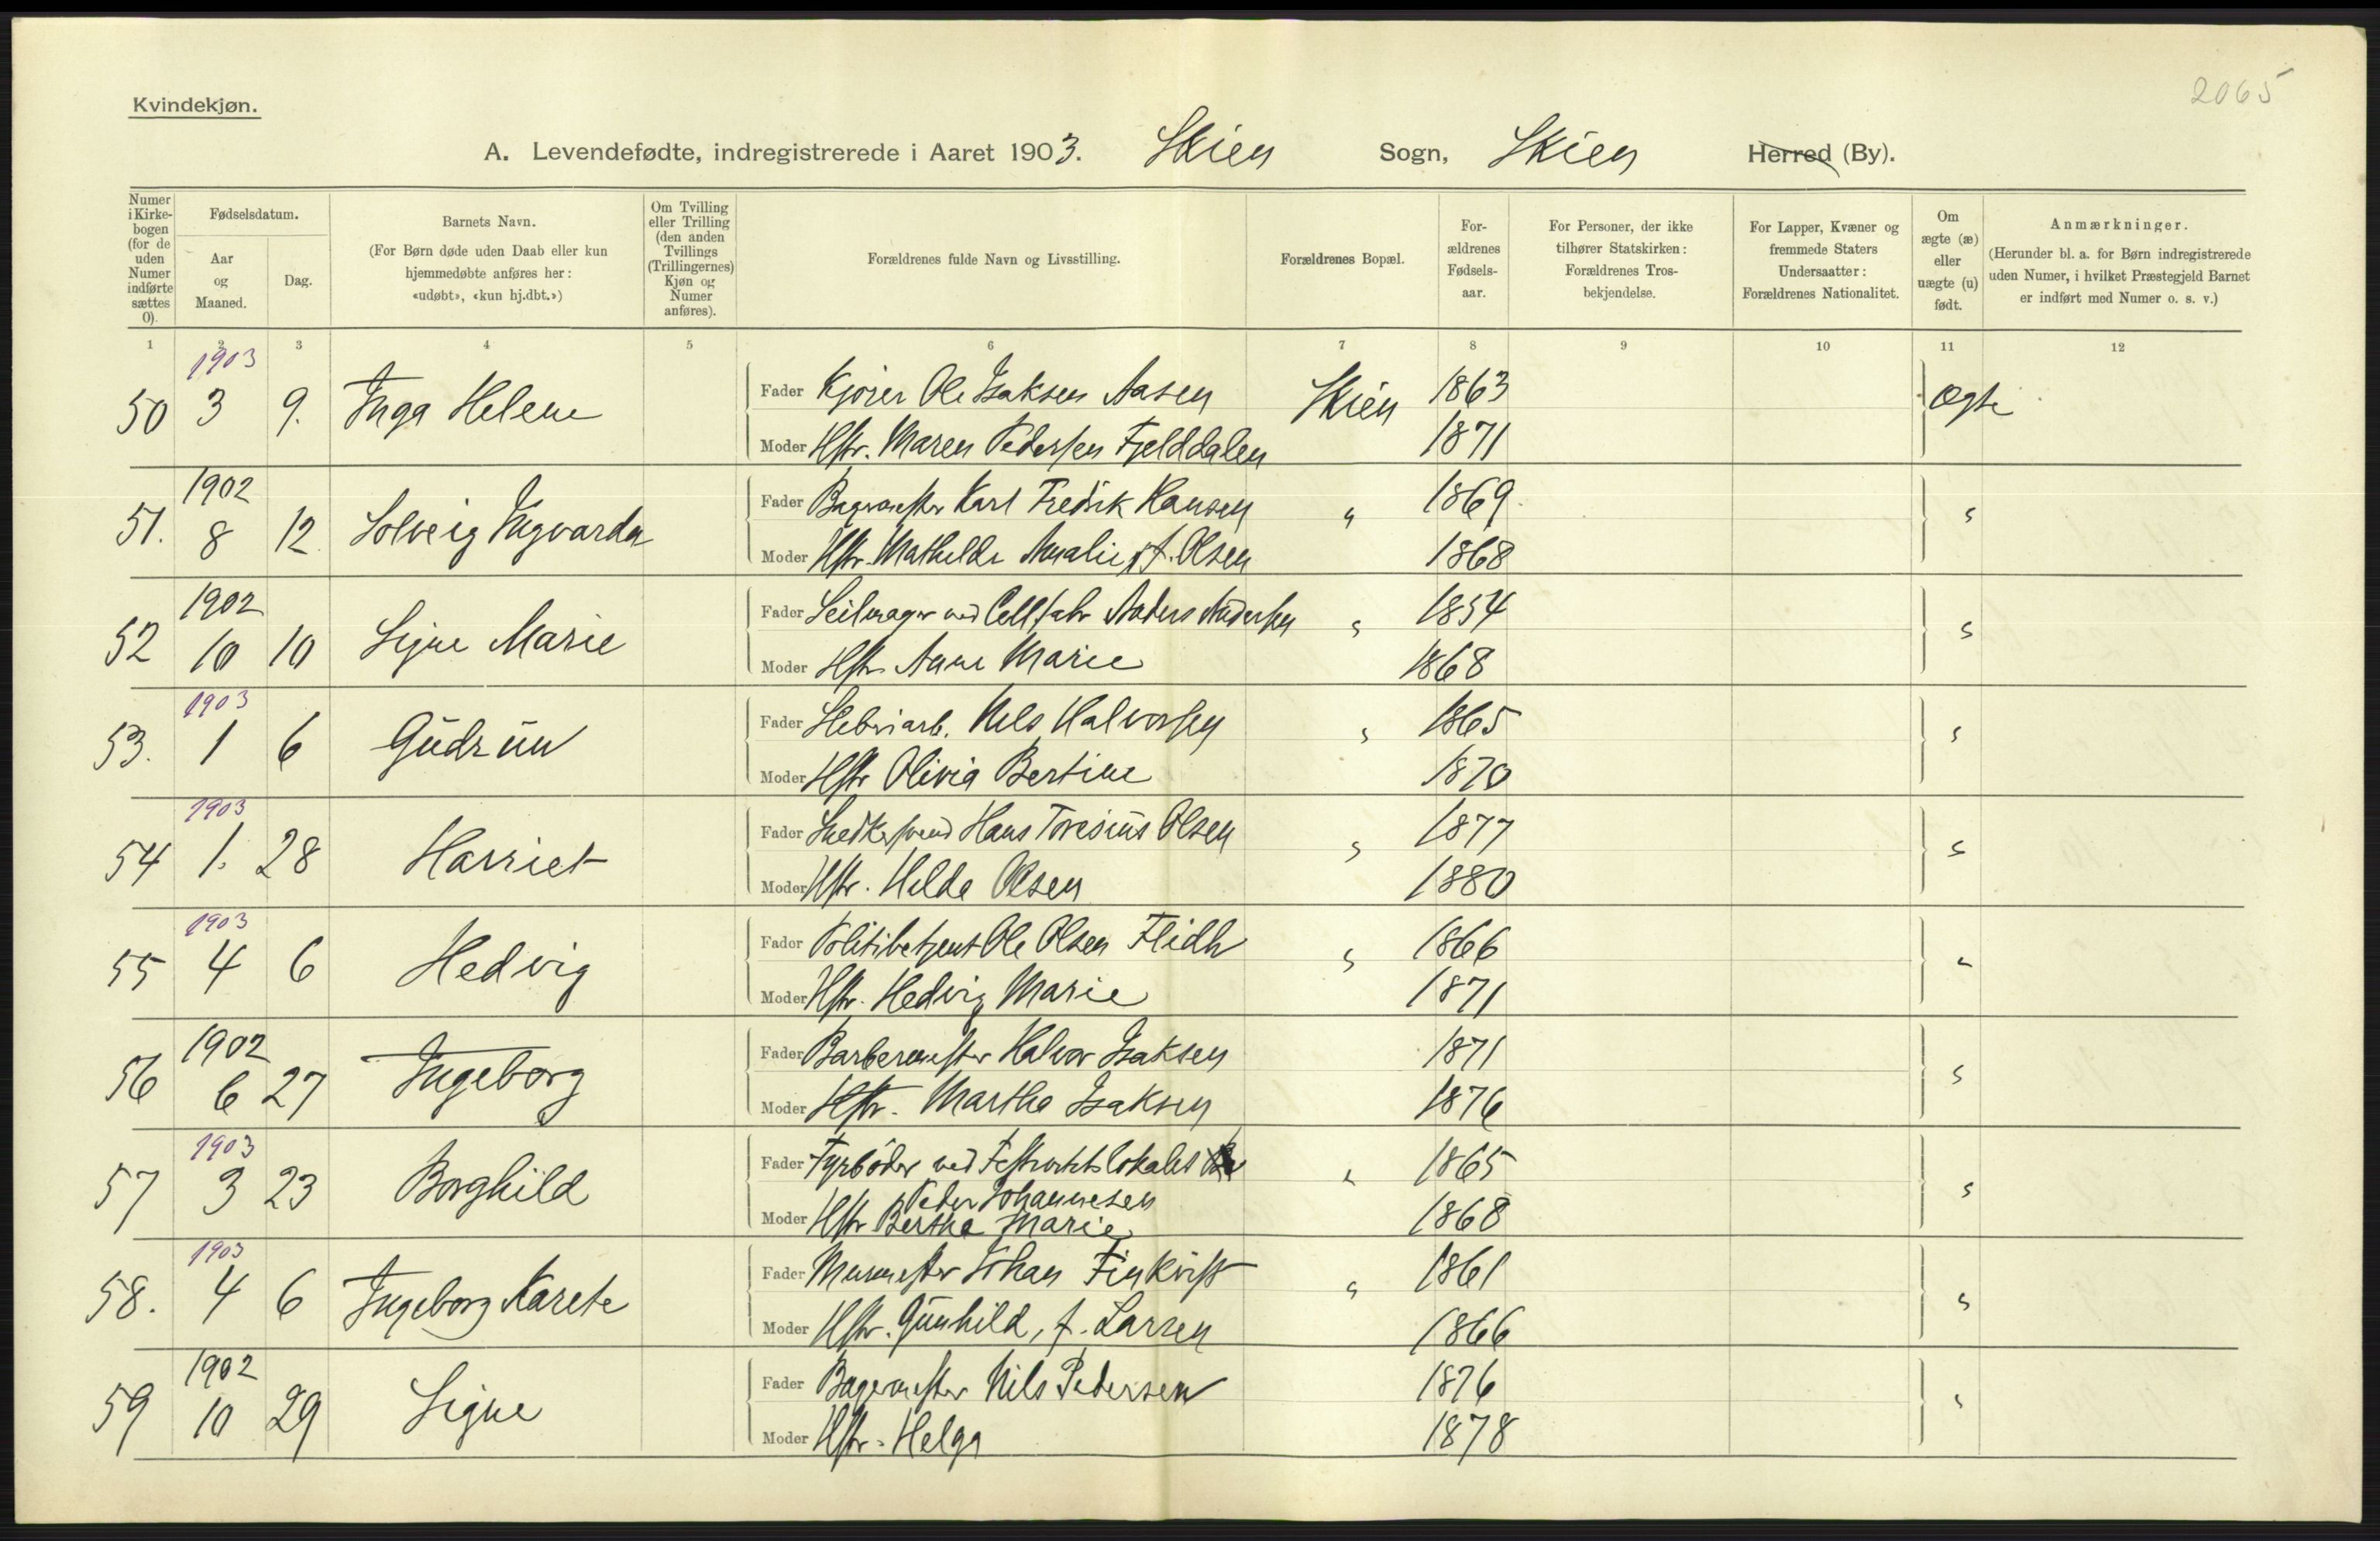 2065
Kvindekjøn.
A. Levendefødte, indregistrerede i Aaret 1903. Skien Sogn, Skien Herred (By).
Numer i Kirkebogen (for de uden Numer indførte sættes 0).
Fødselsdatum.
Aar og Maaned.
Dag.
Barnets Navn.
(For Børn døde uden Daab eller kun hjemmedøbte anføres her: «udøbt», «kun hj.dbt.»)
Om Tvilling eller Trilling (den anden Tvillings (Trillingernes) Kjøn og Numer anføres).
Forældrenes fulde Navn og Livsstilling.
Forældrenes Bopæl.
Forældrenes Fødselsaar.
For Personer, der ikke tilhører Statskirken: Forældrenes Trosbekjendelse.
For Lapper, Kvæner og fremmede Staters Undersaatter: Forældrenes Nationalitet.
Om ægte (æ) eller uægte (u) født.
Anmærkninger.
(Herunder bl. a. for Børn indregistrerede uden Numer, i hvilket Præstegjeld Barnet er indført med Numer o. s. v.)
1 2 3 4 5 6 7 8 9 10 11 12
1903
50 3 9. Inga Helene Fader Kjører Ole Isaksen Aasen Skien 1863 Ægte
Moder Hstr. Maren Pedersen Fjelddalen 1871
1902
51. 8 12 Solveig Ingvarda Fader Bagermester Karl Fredrik Hansen " 1869 "
Moder Hstr. Mathilde Amalie f. Olsen 1868
1902
52 10 10 Signe Marie Fader Seilmager ved Cellfabr Anders Andersen " 1854 "
Moder Hstr Anne Marie 1868
1903
53. 1 6 Gudrun Fader Sliberiarb. Nels Halvorsen " 1865 "
Moder Hstr Olivia Bertine 1870
1903
54 1. 28 Harriet Fader Snedkersvend Hans Toresius Olsen " 1877 "
Moder Hstr. Hilda Olsen 1880
1903
55 4 6 Hedvig Fader Politibetjent Ole Olsen Flidh " 1866 "
Moder Hstr. Hedvig Marie 1871
1902
56 6 27 Ingeborg Fader Barbermester Halvor Isaksen 1871 "
Moder Hstr. Martha Isaksen 1876
1903
57 3 23 Borghild Fader Fyrbøder ved " 1865 "
Peder Johannesen
Moder Hstr Berthe Marie 1868
1903
58. 4 6 Ingeborg Karete Fader Murmester Johan Finkvist " 1861 "
Moder Hstr. Gunhild, f. Larsen 1866
1902
59 10 29 Signe Fader Bagermester Nils Pedersen 1876 "
Moder Hstr. Helga 1878